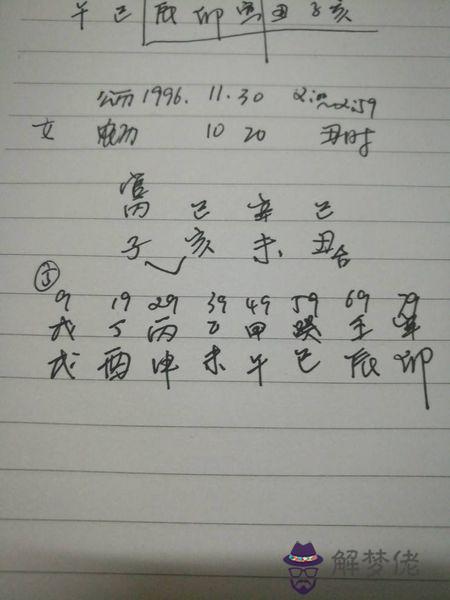 午 巳 辰 卯 寅 丑 子 亥
公历 1996. 11. 30 2:00~2:59
女 农历 10 20 丑时
官
丙 己 辛 己
子 亥 未 丑合
9 19 29 39 49 59 69 79
戊 丁 丙 乙 甲 癸 壬 辛
戌 酉 申 未 午 巳 辰 卯
解梦佬